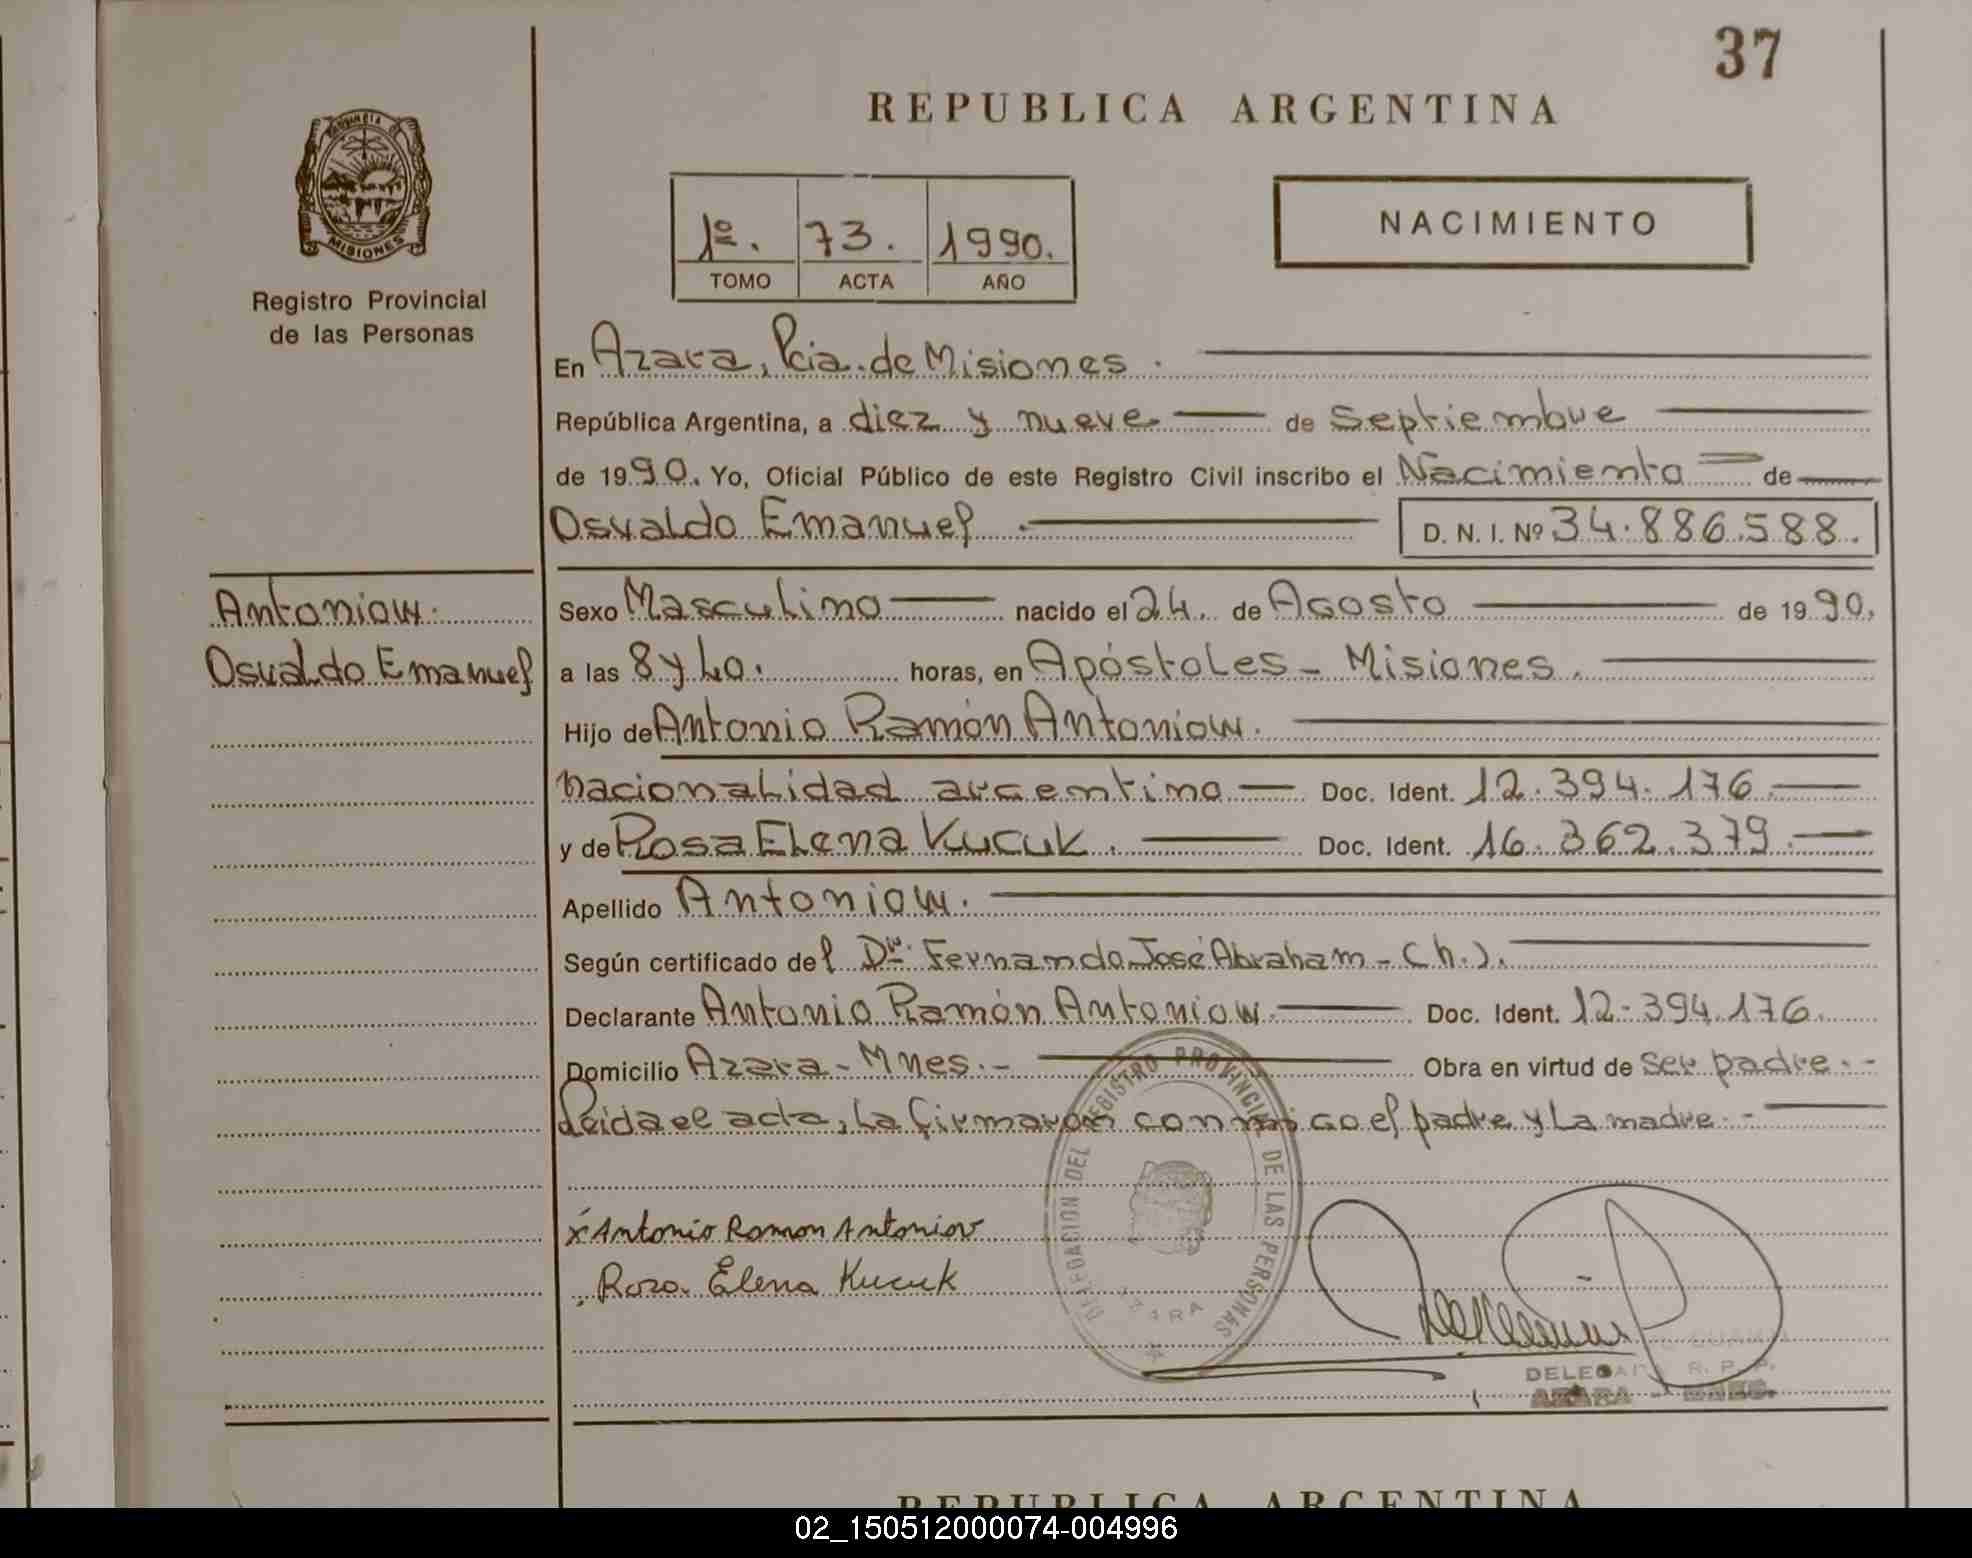 37
REPUBLICA ARGENTINA
PROVINCIA DE
MISIONES
Registro Provincial
de las Personas
1º. 73. 1990.
TOMO ACTA AÑO
NACIMIENTO
En Azara, Pcia. de Misiones.
República Argentina, a diez y nueve de Septiembre
de 1990. Yo, Oficial Público de este Registro Civil inscribo el Nacimiento de
Osvaldo Emanuel D. N. I. Nº 34.886.588.
Antoniow.
Osvaldo Emanuel
Sexo Masculino nacido el 24. de Agosto de 1990.
a las 8 y 40. horas, en Apóstoles - Misiones.
Hijo de Antonio Ramón Antoniow.
nacionalidad argentina Doc. Ident. 12.394.176.
y de Rosa Elena Kucuk. Doc. Ident. 16.362.379.
Apellido Antoniow.
Según certificado del Dr. Fernando José Abraham - (h.).
Declarante Antonio Ramón Antoniow. Doc. Ident. 12.394.176.
Domicilio Azara - Mnes. - Obra en virtud de ser padre. -
Leida el acta, la firmaron conmigo el padre y la madre. -
DELEGACION DEL REGISTRO PROVINCIAL DE LAS PERSONAS
AZARA
x Antonio Ramon Antoniow
Rosa Elena Kucuk
DELEGADO R. P. P.
AZARA - MNES.
REPUBLICA ARGENTINA
02_150512000074-004996